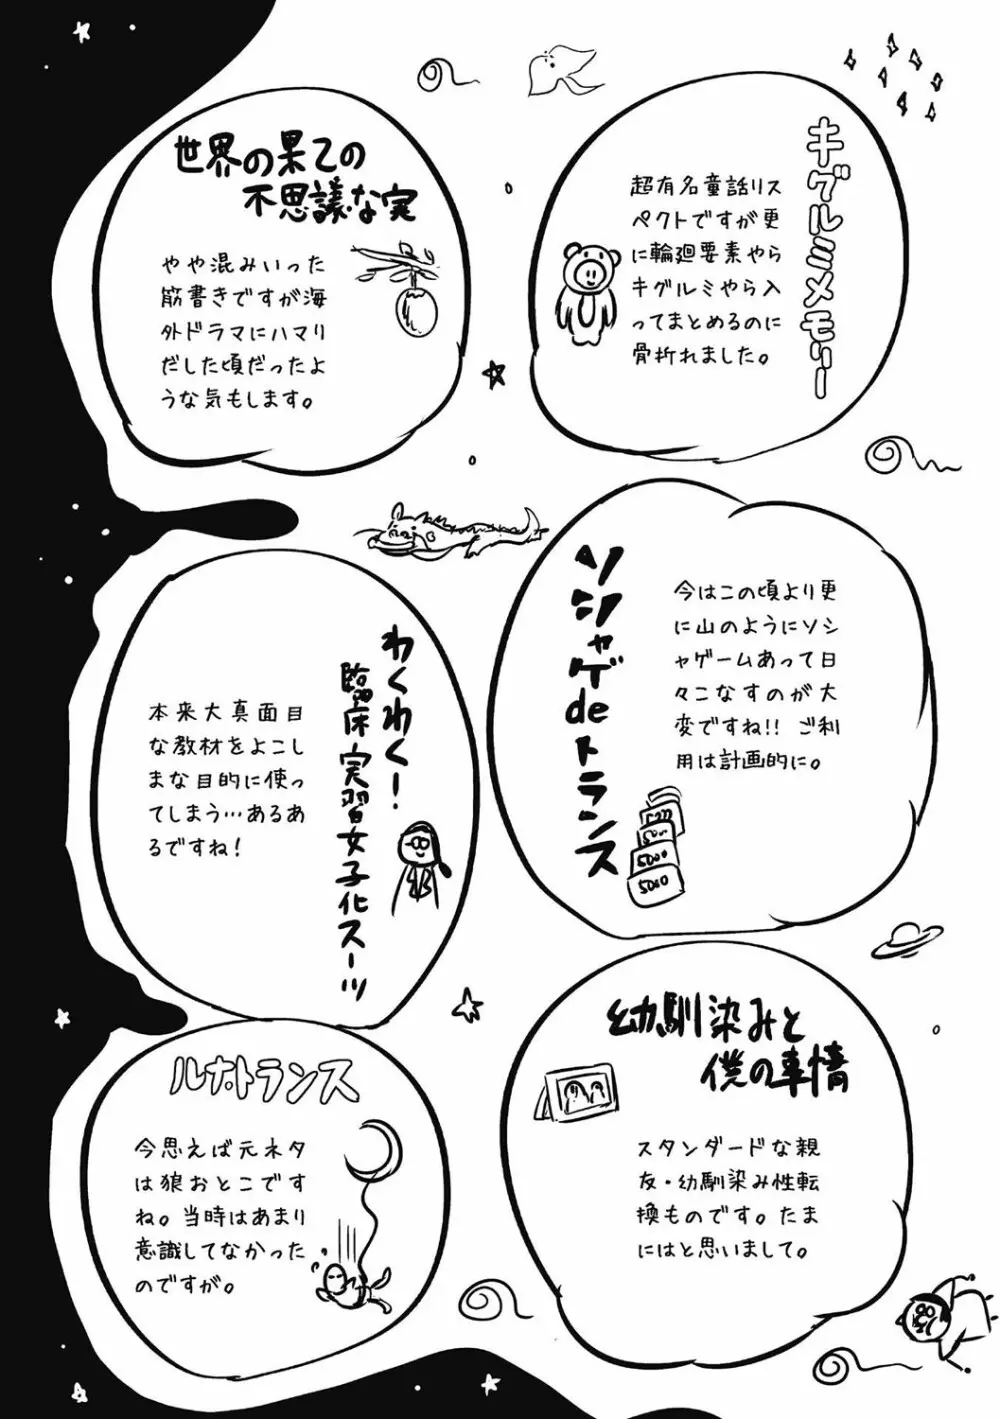 キグルミメモリー
超有名童話リス
ペクトですが更
に輪廻要素やら
キグルミやら入
ってまとめるのに
骨折れました。
世界の果ての
不思議な実
やや混みいった
筋書きですが海
外ドラマにハマり
だした頃だったよ
うな気もします。
ソシャゲdeトランス
今はこの頃より更
に山のようにソシ
ャゲームあって日
々こなすのが大
変ですね!! ご利
用は計画的に。
5000
5000
5000
わくわく!
臨床実習女子化スーツ
本来大真面目
な教材をよこし
まな目的に使っ
てしまう…あるあ
るですね!
幼馴染みと
僕の事情
スタンダードな親
友・幼馴染み性転
換ものです。たま
にはと思いまして。
ルナトランス
今思えば元ネタ
は狼おとこです
ね。当時はあまり
意識してなかった
のですが。